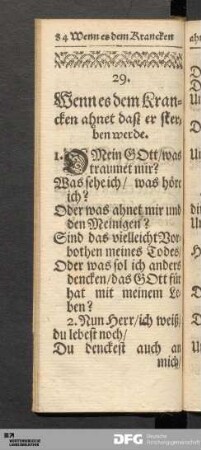 84 Wenn es dem Krancken
29.
Wenn es dem Kran-
cken ahnet dasz er ster-
ben werde.
1. O Mein GOtt/was
traumet mir?
Was sehe ich/ was hört
ich?
Oder was ahnet mir und
den Meinigen?
Sind das vielleicht Vor-
bothen meines Todes
Oder was sol ich anders
dencken/das GOtt für
hat mit meinem Le-
ben?
2. Nun Herr/ich weiß/
du lebest noch/
Du denckest auch an
mich/
DFG Deutsche
Forschungsgemeinschaft